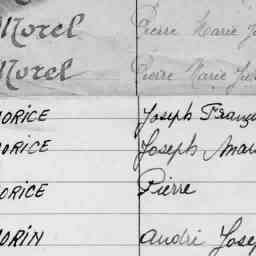 Morel Pierre Marie
Morel Pierre Marie
ORICE Joseph
ORICE Joseph
ORICE Pierre
ORIN André